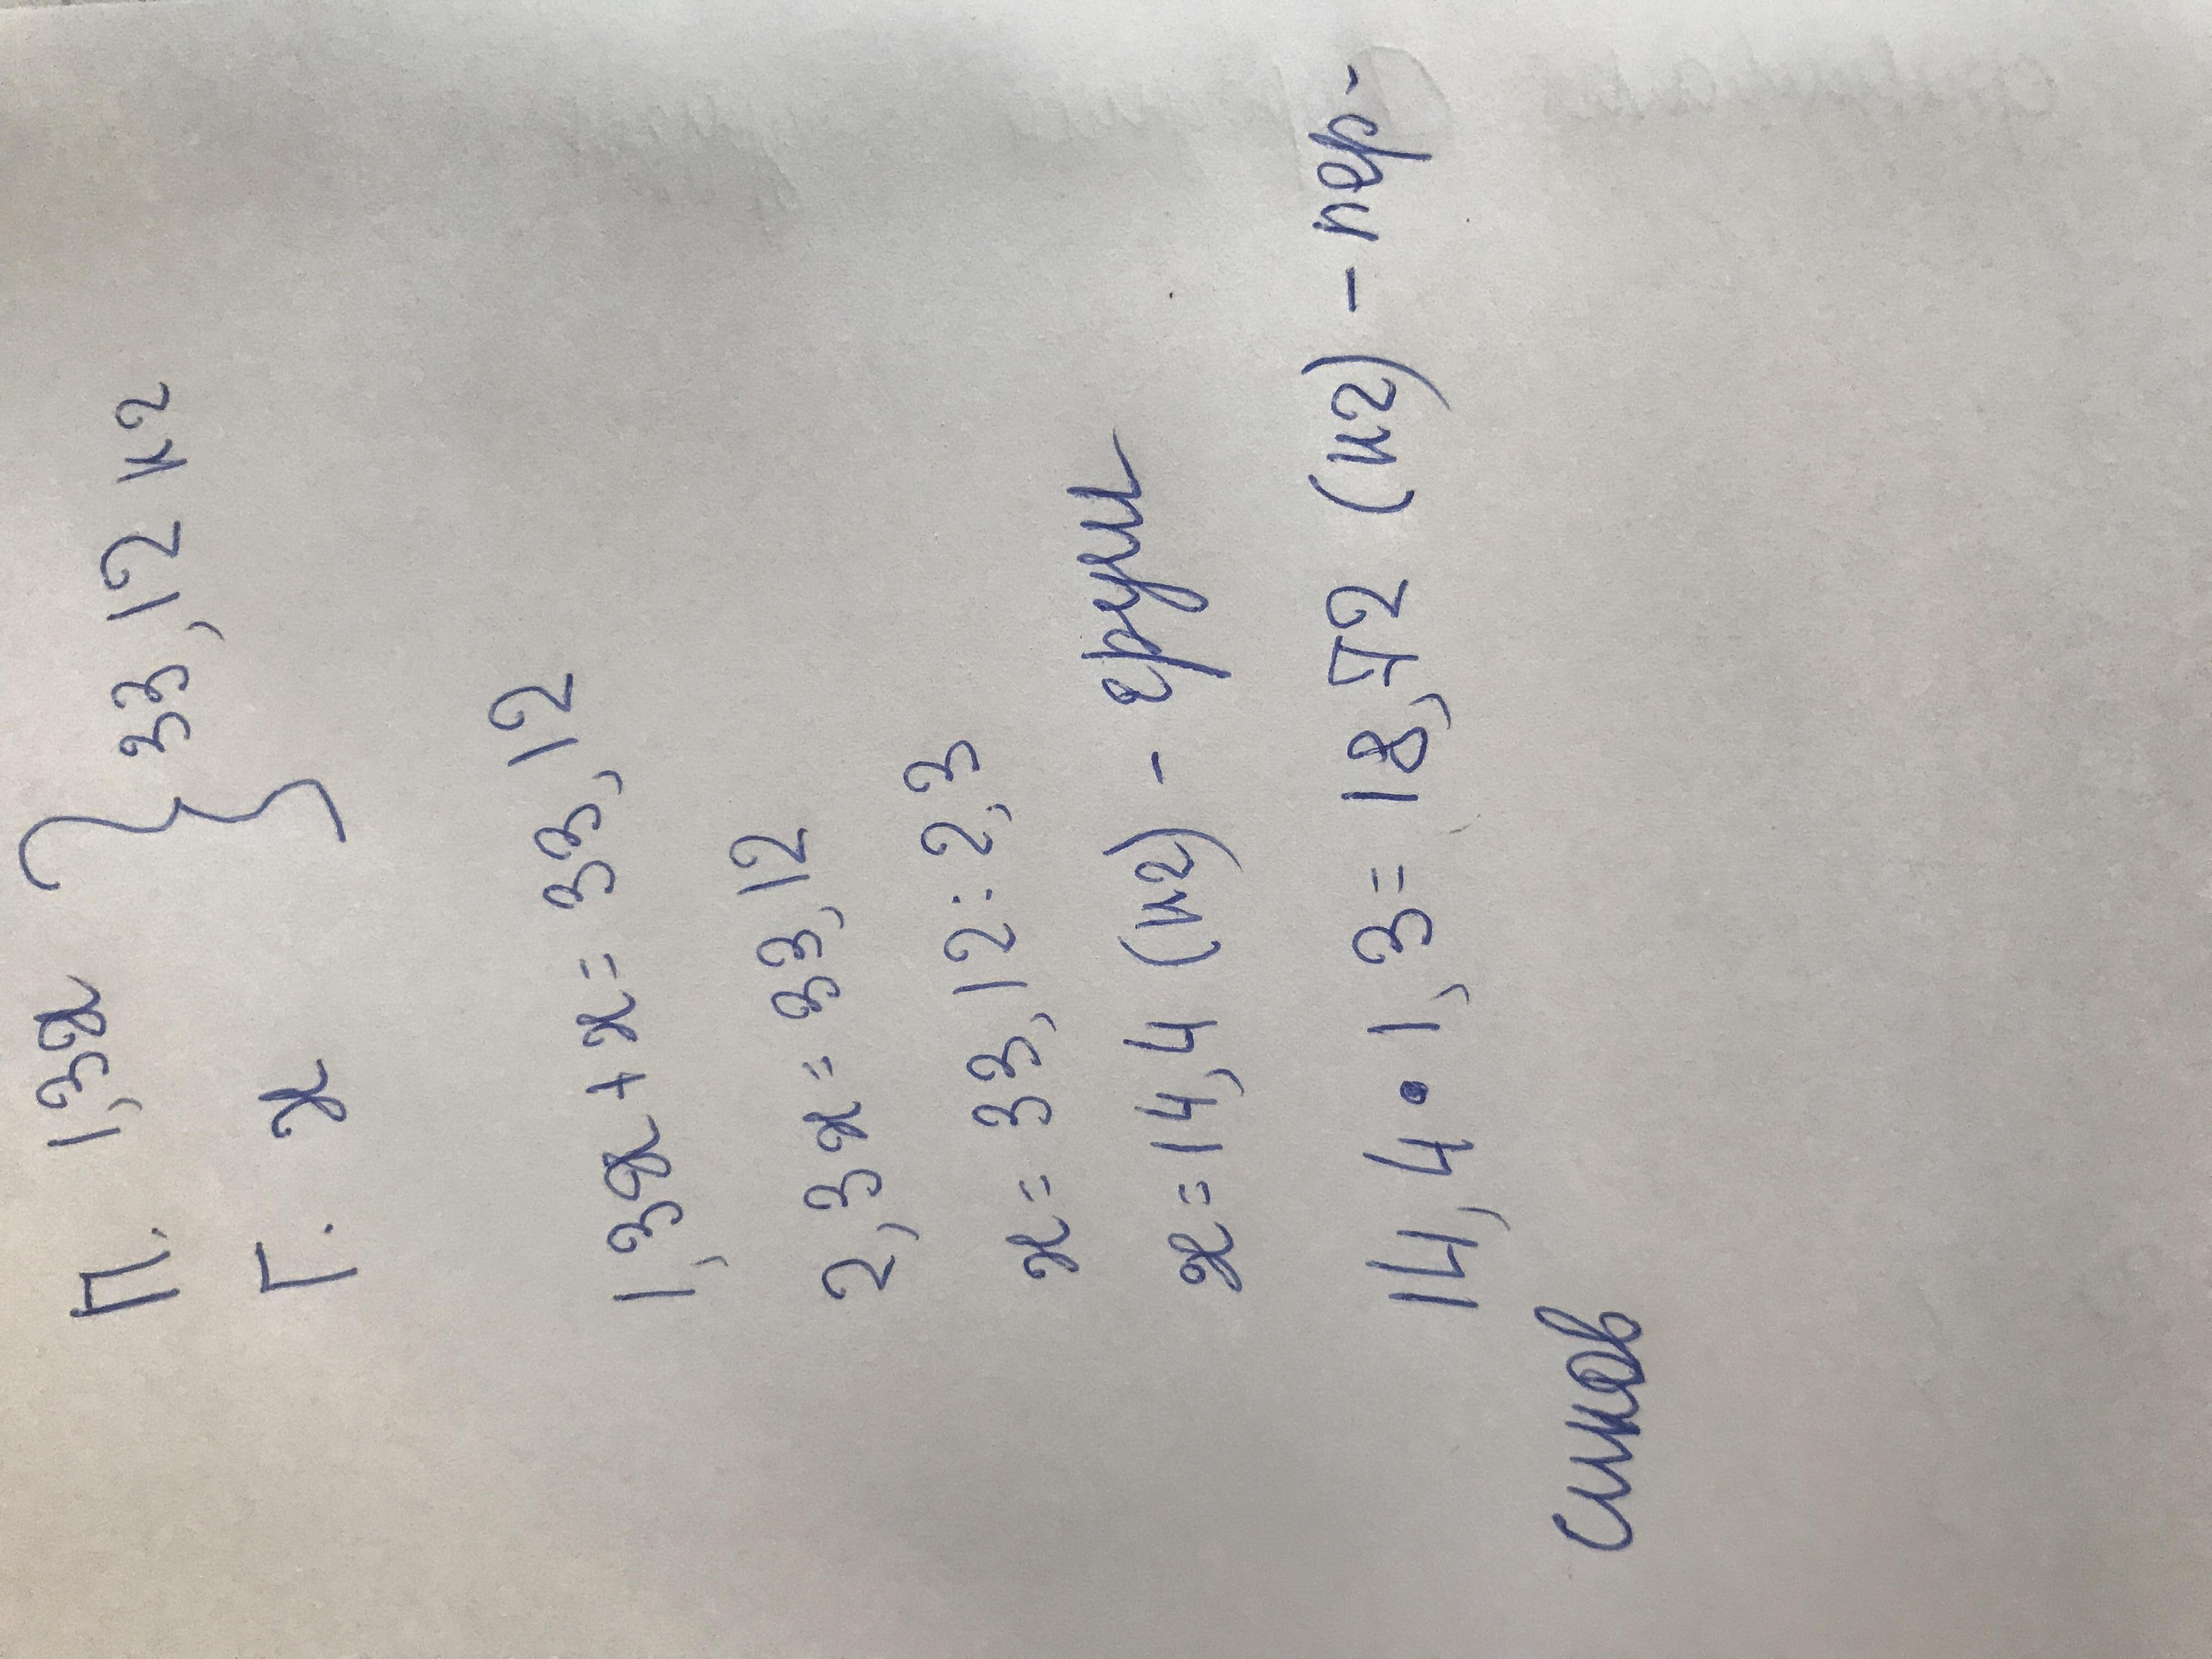 П. 1,3x } 33,12 кг
Г. x
1,3x + x = 33,12
2,3x = 33,12
x = 33,12 : 2,3
x = 14,4 (кг) - груш
14,4 • 1,3 = 18,72 (кг) - пер-
сиков